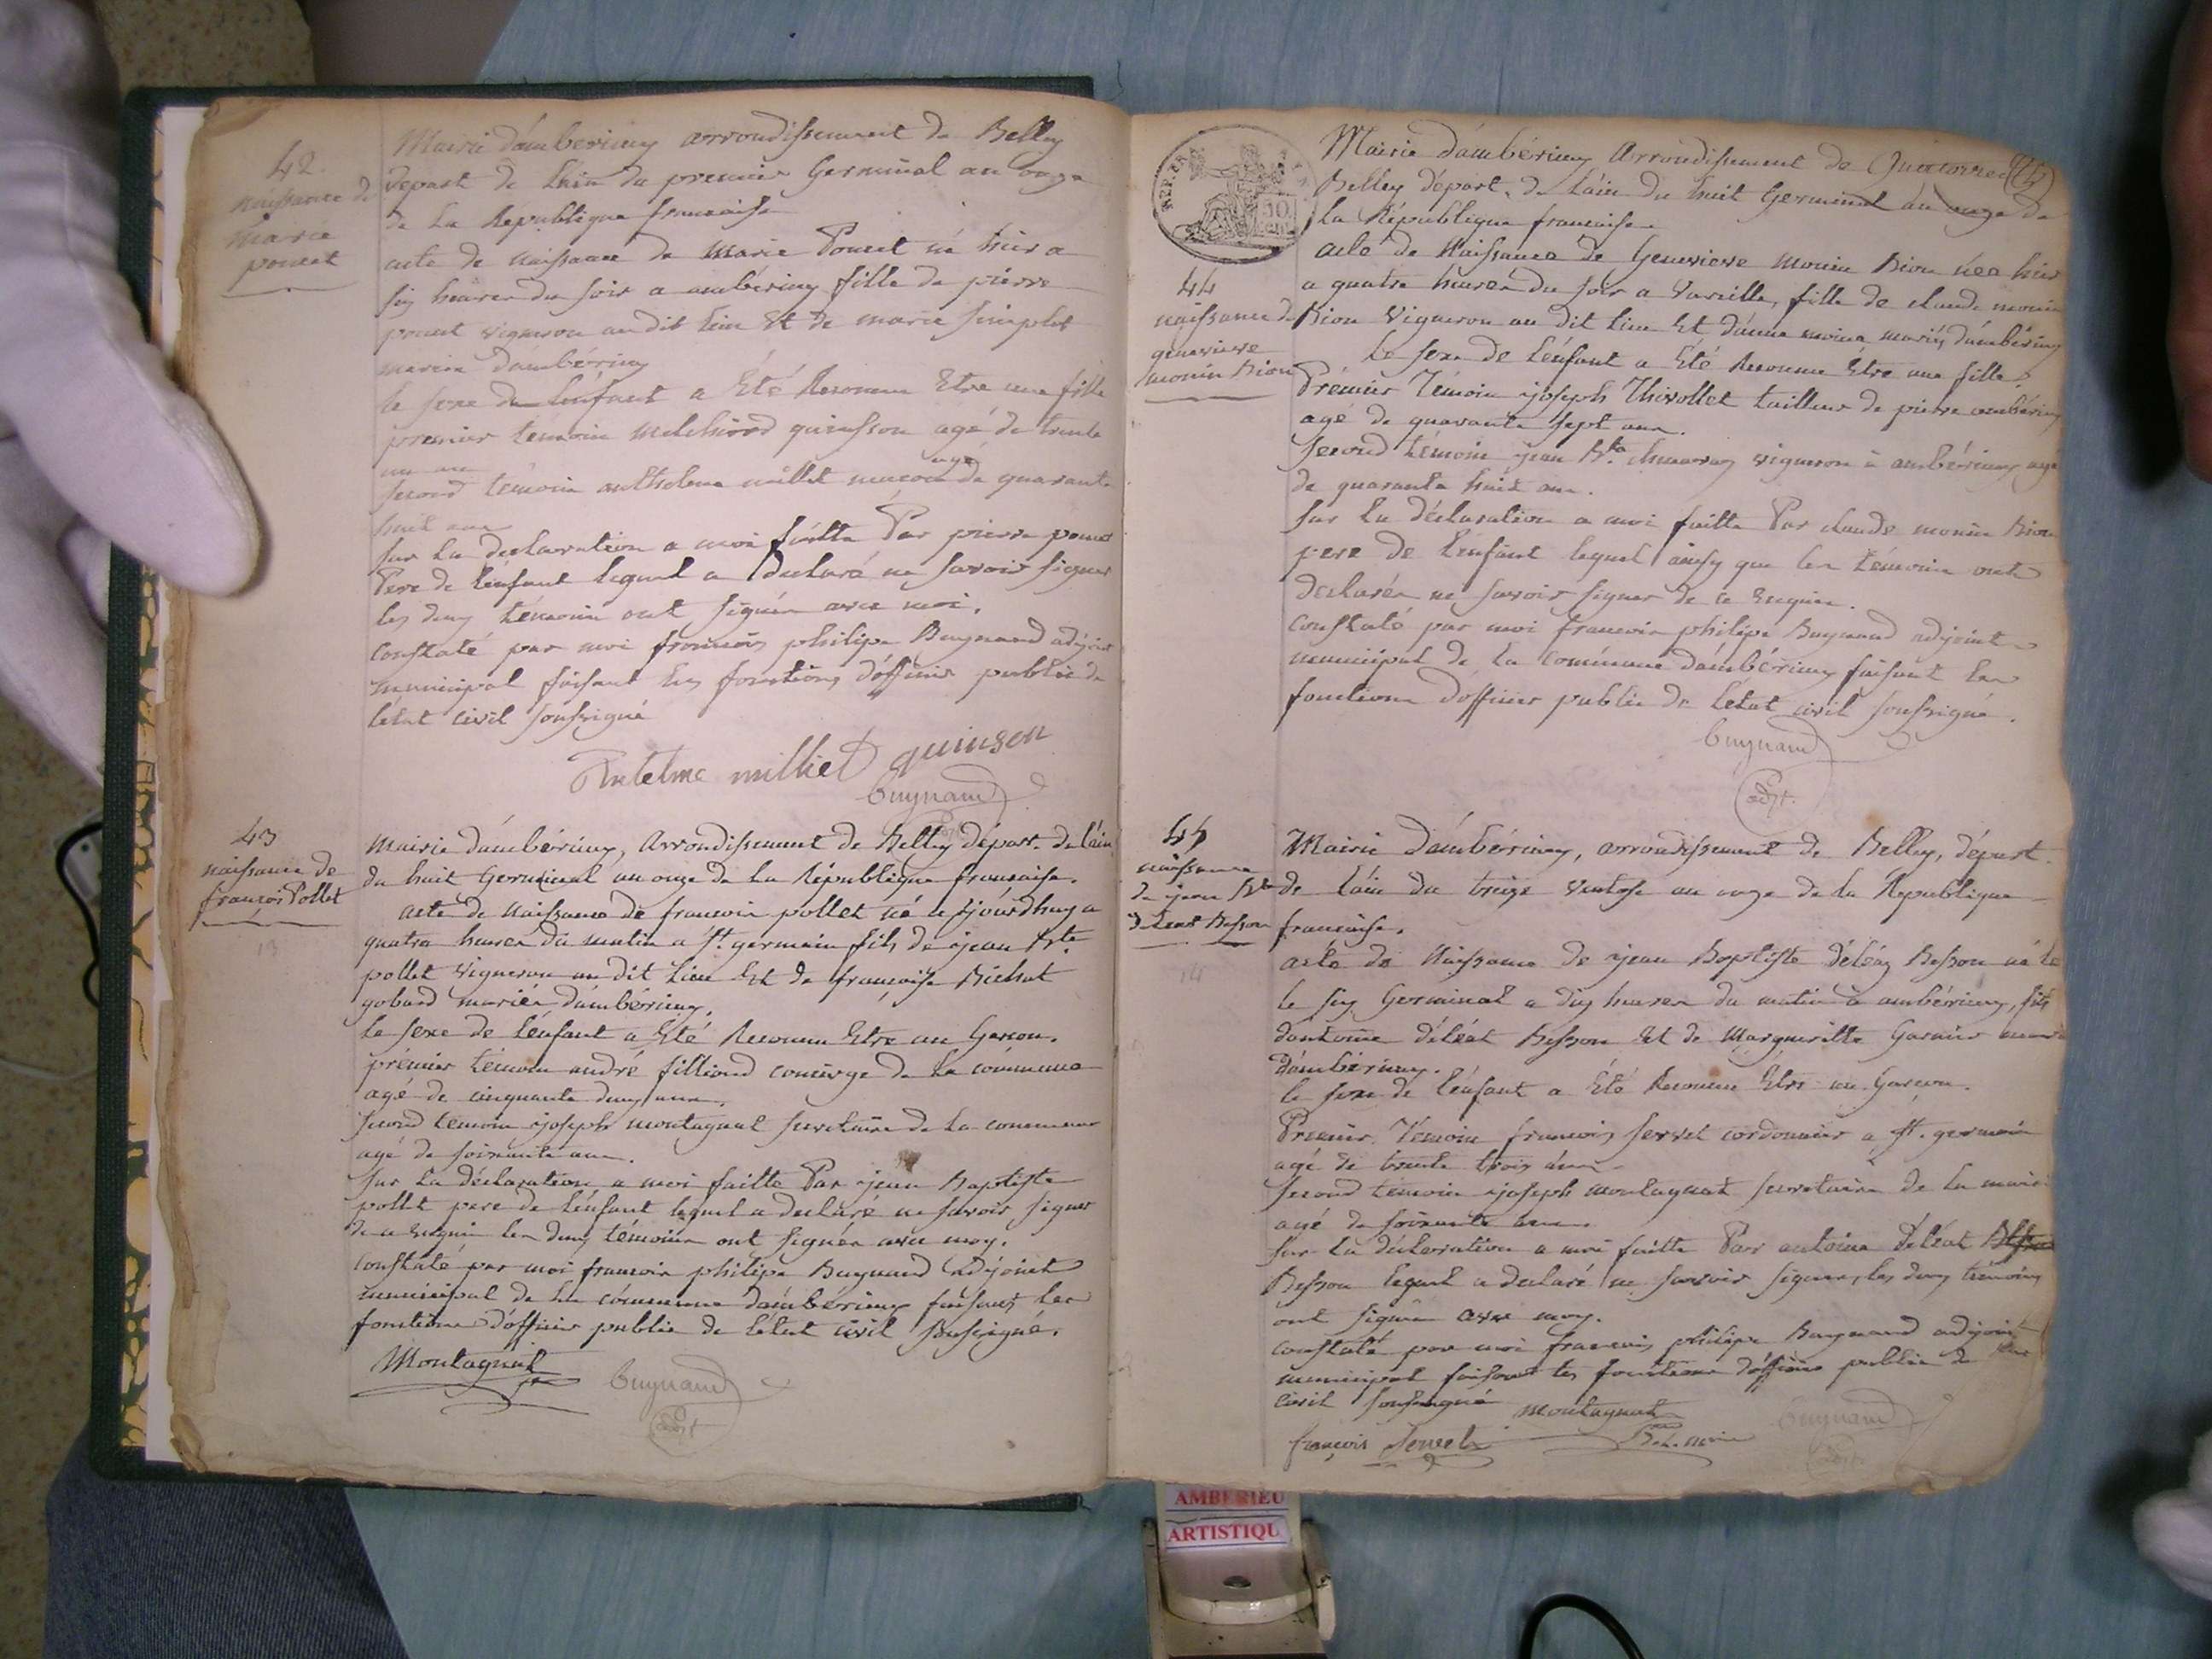 42.
naissance de
marie
poncet
Mairie d'ambérieuy arrondissement de Belley
depart de l'ain du premier Germinal an onze
de la République francaise
acte de naissance de marie Poncet né hier a
six heures du soir a ambérieuy fille de pierre
poncet vigneron au dit lieu Et de marie
mariés d'ambérieuy
le sexe de l'énfant a Eté Reconnu Etre une fille
premier témoin melchiord quinsson agé de trente
un ans
second témoin anthelme millet macon agé de quarante
huit ans
sur la declaration a moi faitte Par pierre poncet
Pere de l'énfant lequel a declaré ne savoir signer
les deux témoins ont signés avec moi.
constaté par moi francois philipe Buynand adjoint
municipal faisant les fonctions d'officier public de
l'etat civil soussigné
Antelme milliet quinson
buynand
43
naissance de
françois Pollet
13
mairie d'ambérieuy, Arrondissement de Belley départ. de l'ain
du huit Germinal an onze de la République francaise.
acte de naissance de francois pollet né ce jourd'huy a
quatre heures du matin a St. germain fils de jean Bte.
pollet vigneron au dit lieu Et de françoise Bichat
gobard mariés d'ambérieuy.
le sexe de l'énfant a Eté Reconnu Etre un Garcon.
premier témoin andré filliand concierge de la commune
agé de cinquante deux ans.
second temoin joseph montagnat secretaire de la commune
agé de soixante ans.
sur la déclaration a moi faitte Par jean Baptiste
pollet pere de l'énfant lequel a declaré ne savoir signer
de ce Enquis les deux témoins ont signés avec moy.
constaté par moi francois philipe Buynand adjoint
municipal de la commune d'ambérieuy faisant les
fonctions d'officier public de l'état civil soussigné.
Montagnat
buynand
adjt
REP. FRA
50
cent
44
naissance de
genevieve
monin Bion
Mairie d'ambérieuy Arrondissement de
Belley départ. de l'ain du huit Germinal an onze de
la République francaise
acte de Naissance de Genevieve monin Bion née hier
a quatre heures du soir a Vareille, fille de claude monin
Bion Vigneron au dit lieu Et d'anne moine mariés d'ambérieuy
Le sexe de l'énfant a Eté Reconnu Etre une fille.
Prémier Témoin joseph Thivollet tailleur de pierre ambérieuy
agé de quarante sept ans.
second témoin jean Bte. vigneron à ambérieuy agé
de quarante huit ans.
sur la déclaration a moi faitte Par claude monin Bion
pere de l'énfant lequel ainsy que les témoins ont
declarés ne savoir signer de ce Enquis.
constaté par moi francois philipe Buynand adjoint
municipal de la commune d'ambérieuy faisant les
fonctions d'officier public de l'état civil soussigné.
buynand
adjt.
45
naissance
de jean Bte
deleat Besson
14
Mairie d'ambérieuy, arrondissement de Belley, départ.
de l'ain du treize Ventose an onze de la République
francaise.
acte de Naissance de jean Baptiste déléaz Besson né le
le six Germinal a dix heures du matin à ambérieuy, fils
d'antoine déléat Besson Et de Margueritte Garnier
d'ambérieuy.
le sexe de l'énfant a Eté Reconnu Etre un Garçon.
Premier Témoin francois servet cordonnier a St. germain
agé de trente trois ans.
second témoin joseph montagnat secretaire de la mairie
agé de soixante ans.
sur la déclaration a moi faitte Par antoine Déléat Besson
Besson lequel a declaré ne savoir signer, les deux témoins
ont signés avec moy.
constaté par moi francois philipe Buynand adjoint
municipal faisant les fonctions d'officier public de
civil soussigné
montagnat
buynand
françois Servet
AMBERIEU
ARTISTIQU